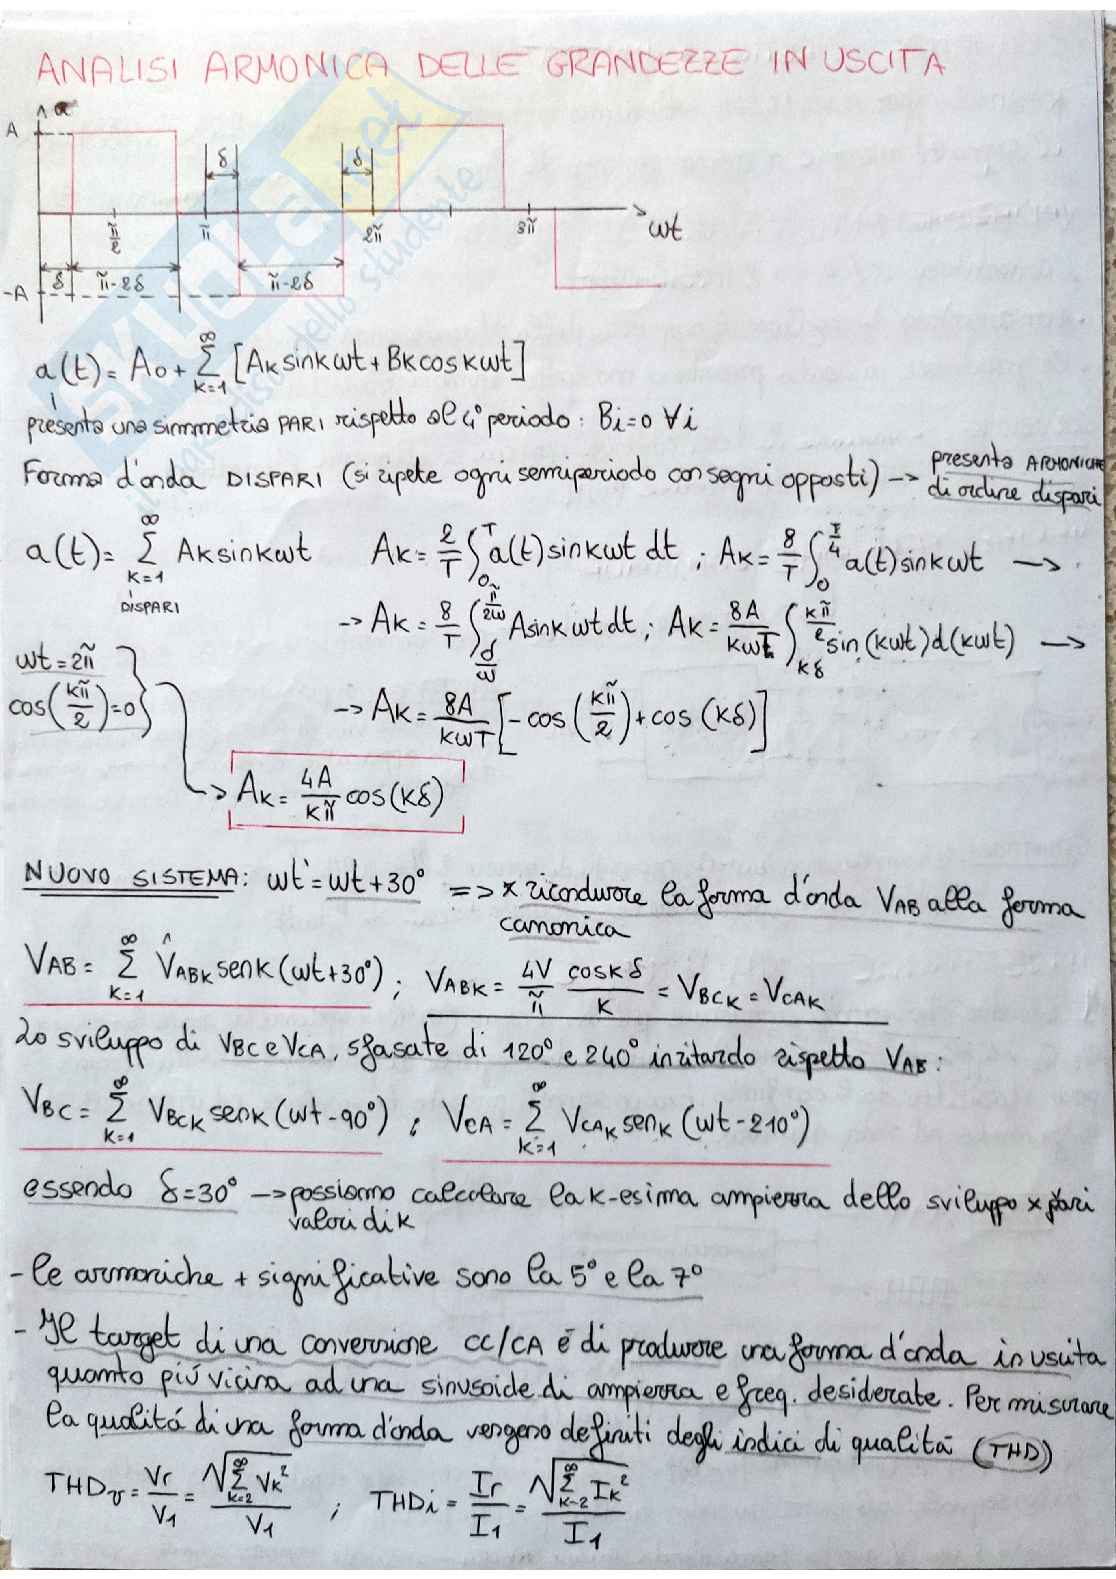 ANALISI ARMONICA DELLE GRANDEZZE IN USCITA
a
A
δ δ
π/2 π 2π 3π ωt
δ π-2δ π-2δ
-A
SKUOLA.net
paradiso dello studente
a(t) = A0 + ∑_{k=1}^{∞} [Ak sinkωt + Bk coskωt]
presenta una simmetria PARI rispetto al 4° periodo: Bi=0 ∀i
Forma d'onda DISPARI (si ripete ogni semiperiodo con segni opposti) → presenta ARMONICHE
di ordine dispari
a(t) = ∑_{k=1}^{∞} Ak sinkωt   Ak = 2/T ∫_0^T a(t) sinkωt dt ; Ak = 8/T ∫_0^{T/4} a(t) sinkωt →
DISPARI
→ Ak = 8/T ∫_{δ/ω}^{π/2ω} A sinkωt dt ; Ak = 8A/kωT ∫_{kδ}^{kπ/2} sin(kωt) d(kωt) →
ωt = 2π
cos(kπ/2) = 0
→ Ak = 8A/kωT [-cos(kπ/2) + cos(kδ)]
→ Ak = 4A/kπ cos(kδ)
NUOVO SISTEMA: ωt' = ωt + 30° => x ricondurre la forma d'onda VAB alla forma
canonica
VAB = ∑_{k=1}^{∞} V̂ABk senk(ωt+30°) ; VABk = 4V/π coskδ/k = VBCk = VCAk
Lo sviluppo di VBC e VCA, sfasate di 120° e 240° in ritardo rispetto VAB:
VBC = ∑_{k=1}^{∞} VBCk senk(ωt-90°) ; VCA = ∑_{k=1}^{∞} VCAk senk(ωt-210°)
essendo δ=30° → possiamo calcolare la k-esima ampiezza dello sviluppo x vari
valori di k
- le armoniche + significative sono la 5° e la 7°
- Il target di una conversione CC/CA é di produrre una forma d'onda in uscita
quanto piú vicina ad una sinusoide di ampiezza e freq. desiderate. Per misurare
la qualitá di una forma d'onda vengono definiti degli indici di qualitá (THD)
THDv = Vr/V1 = √(∑_{k=2}^{∞} Vk²)/V1 ; THDi = Ir/I1 = √(∑_{k=2}^{∞} Ik²)/I1